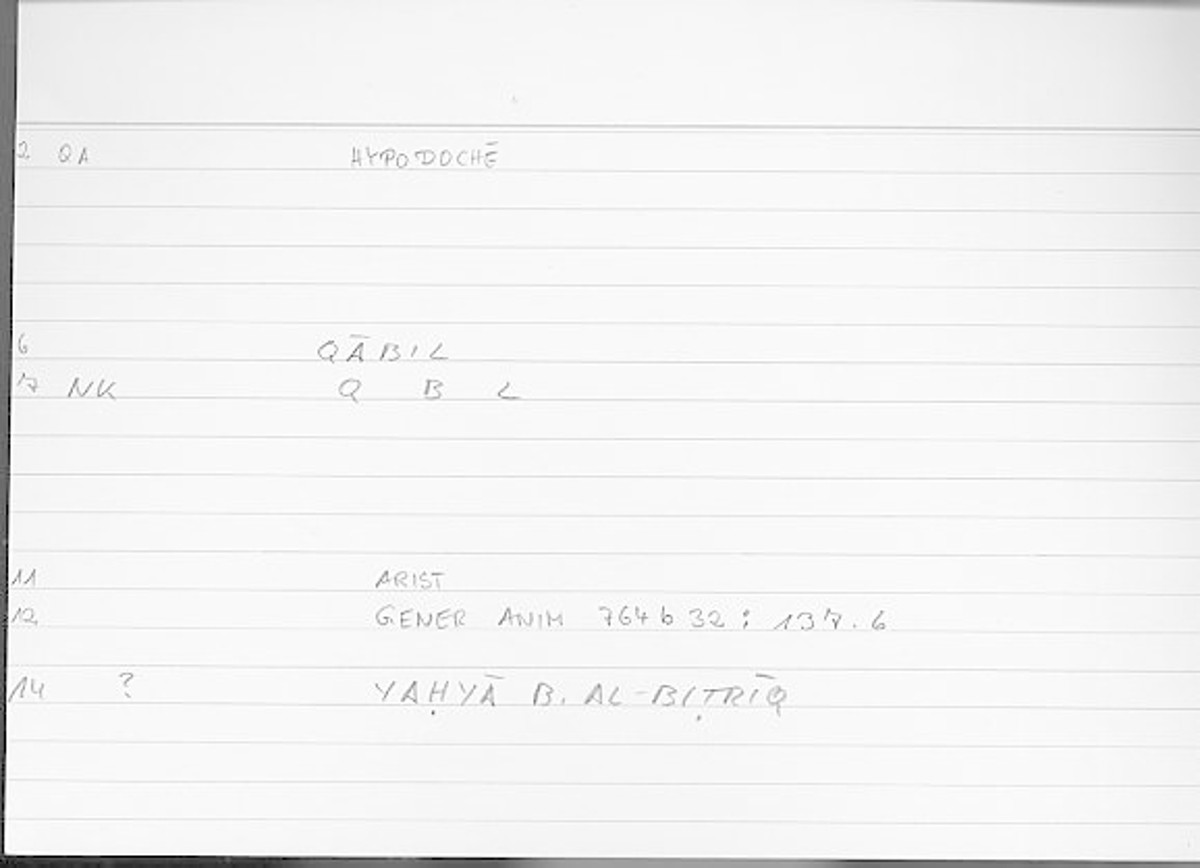 2 QA HYPODOCHĒ
6 QĀBIL
17 NK Q B L
11 ARIST
12 GENER ANIM 764 b 32 : 137.6
14 ? YAḤYĀ B. AL-BIṬRĪQ